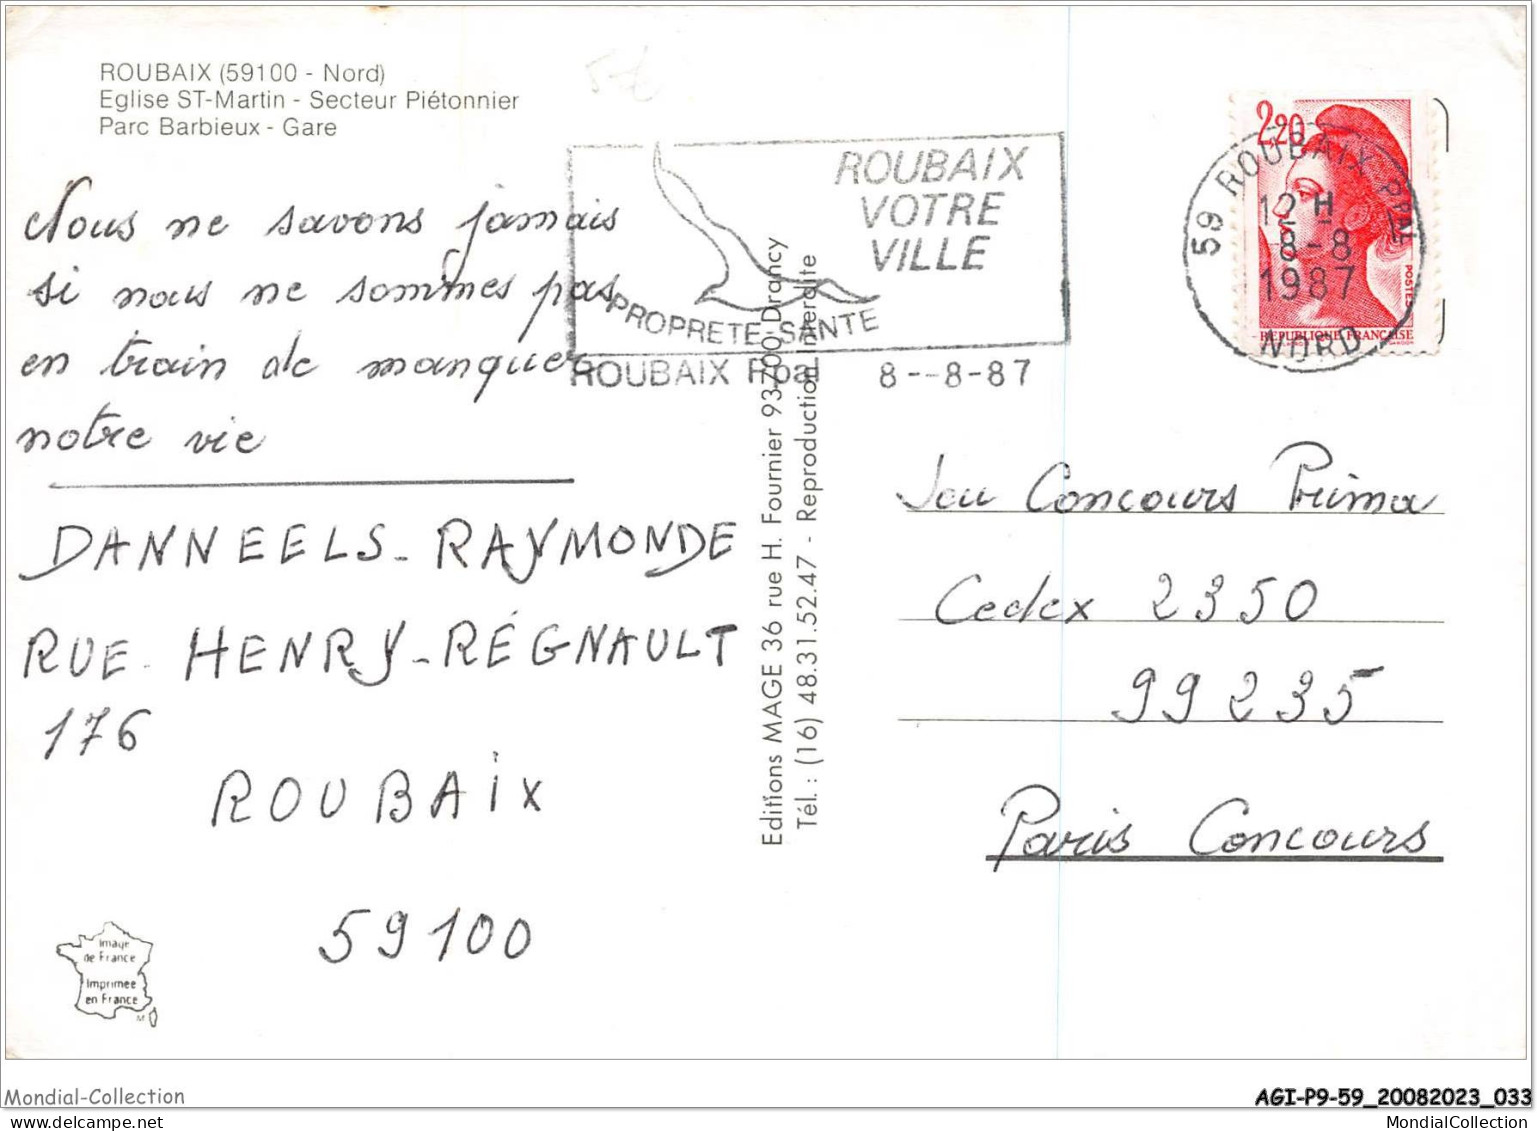 ROUBAIX (59100 - Nord)
Eglise ST-Martin - Secteur Piétonnier
Parc Barbieux - Gare
Nous ne savons jamais
si nous ne sommes pas
en train de manquer
notre vie
DANNEELS-RAYMONDE
RUE-HENRY-RÉGNAULT
176
ROUBAIX
59100
Image
de France
Imprimée
en France
M
Editions MAGE 36 rue H. Fournier 93700 Drancy
Tél. : (16) 48.31.52.47 - Reproduction interdite
ROUBAIX
VOTRE
VILLE
PROPRETE-SANTE
ROUBAIX Ppal 8--8-87
2,20
POSTES
REPUBLIQUE FRANÇAISE
59 ROUBAIX PPAL
12 H
8-8
1987
NORD
Jeu Concours Prima
Cedex 2350
99235
Paris Concours
Mondial-Collection
AGI-P9-59_20082023_033
MondialCollection